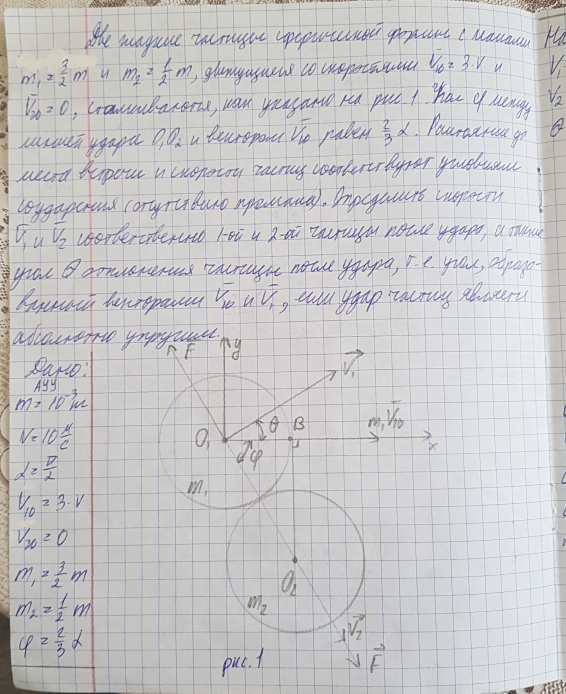 Две гладкие частицы сферической формы с массами
m₁ = 3/2 m и m₂ = 1/2 m, движущиеся со скоростями V̄₁₀ = 3·V и
V̄₂₀ = 0, сталкиваются, как указано на рис. 1. Угол φ между
линией удара O₁O₂ и вектором V̄₁₀ равен 2/3 α. Расстояние до
места встречи и скорости частиц соответствуют условиям
соударения (отсутствию промаха). Определить скорости
V̄₁ и V̄₂ соответственно 1-ой и 2-ой частицы после удара, а также
угол θ отклонения частицы после удара, т.е. угол, образо-
ванный векторами V̄₁₀ и V̄₁, если удар частиц является
абсолютно упругим.
Дано:
m = 10⁻³ кг
V = 10 м/с
α = π/2
V̄₁₀ = 3·V
V̄₂₀ = 0
m₁ = 3/2 m
m₂ = 1/2 m
φ = 2/3 α
F̄
y
V̄₁
O₁
θ
B
m₁V̄₁₀
x
φ
m₁
O₂
m₂
V̄₂
F̄
рис. 1
На
V₁
V₂
θ